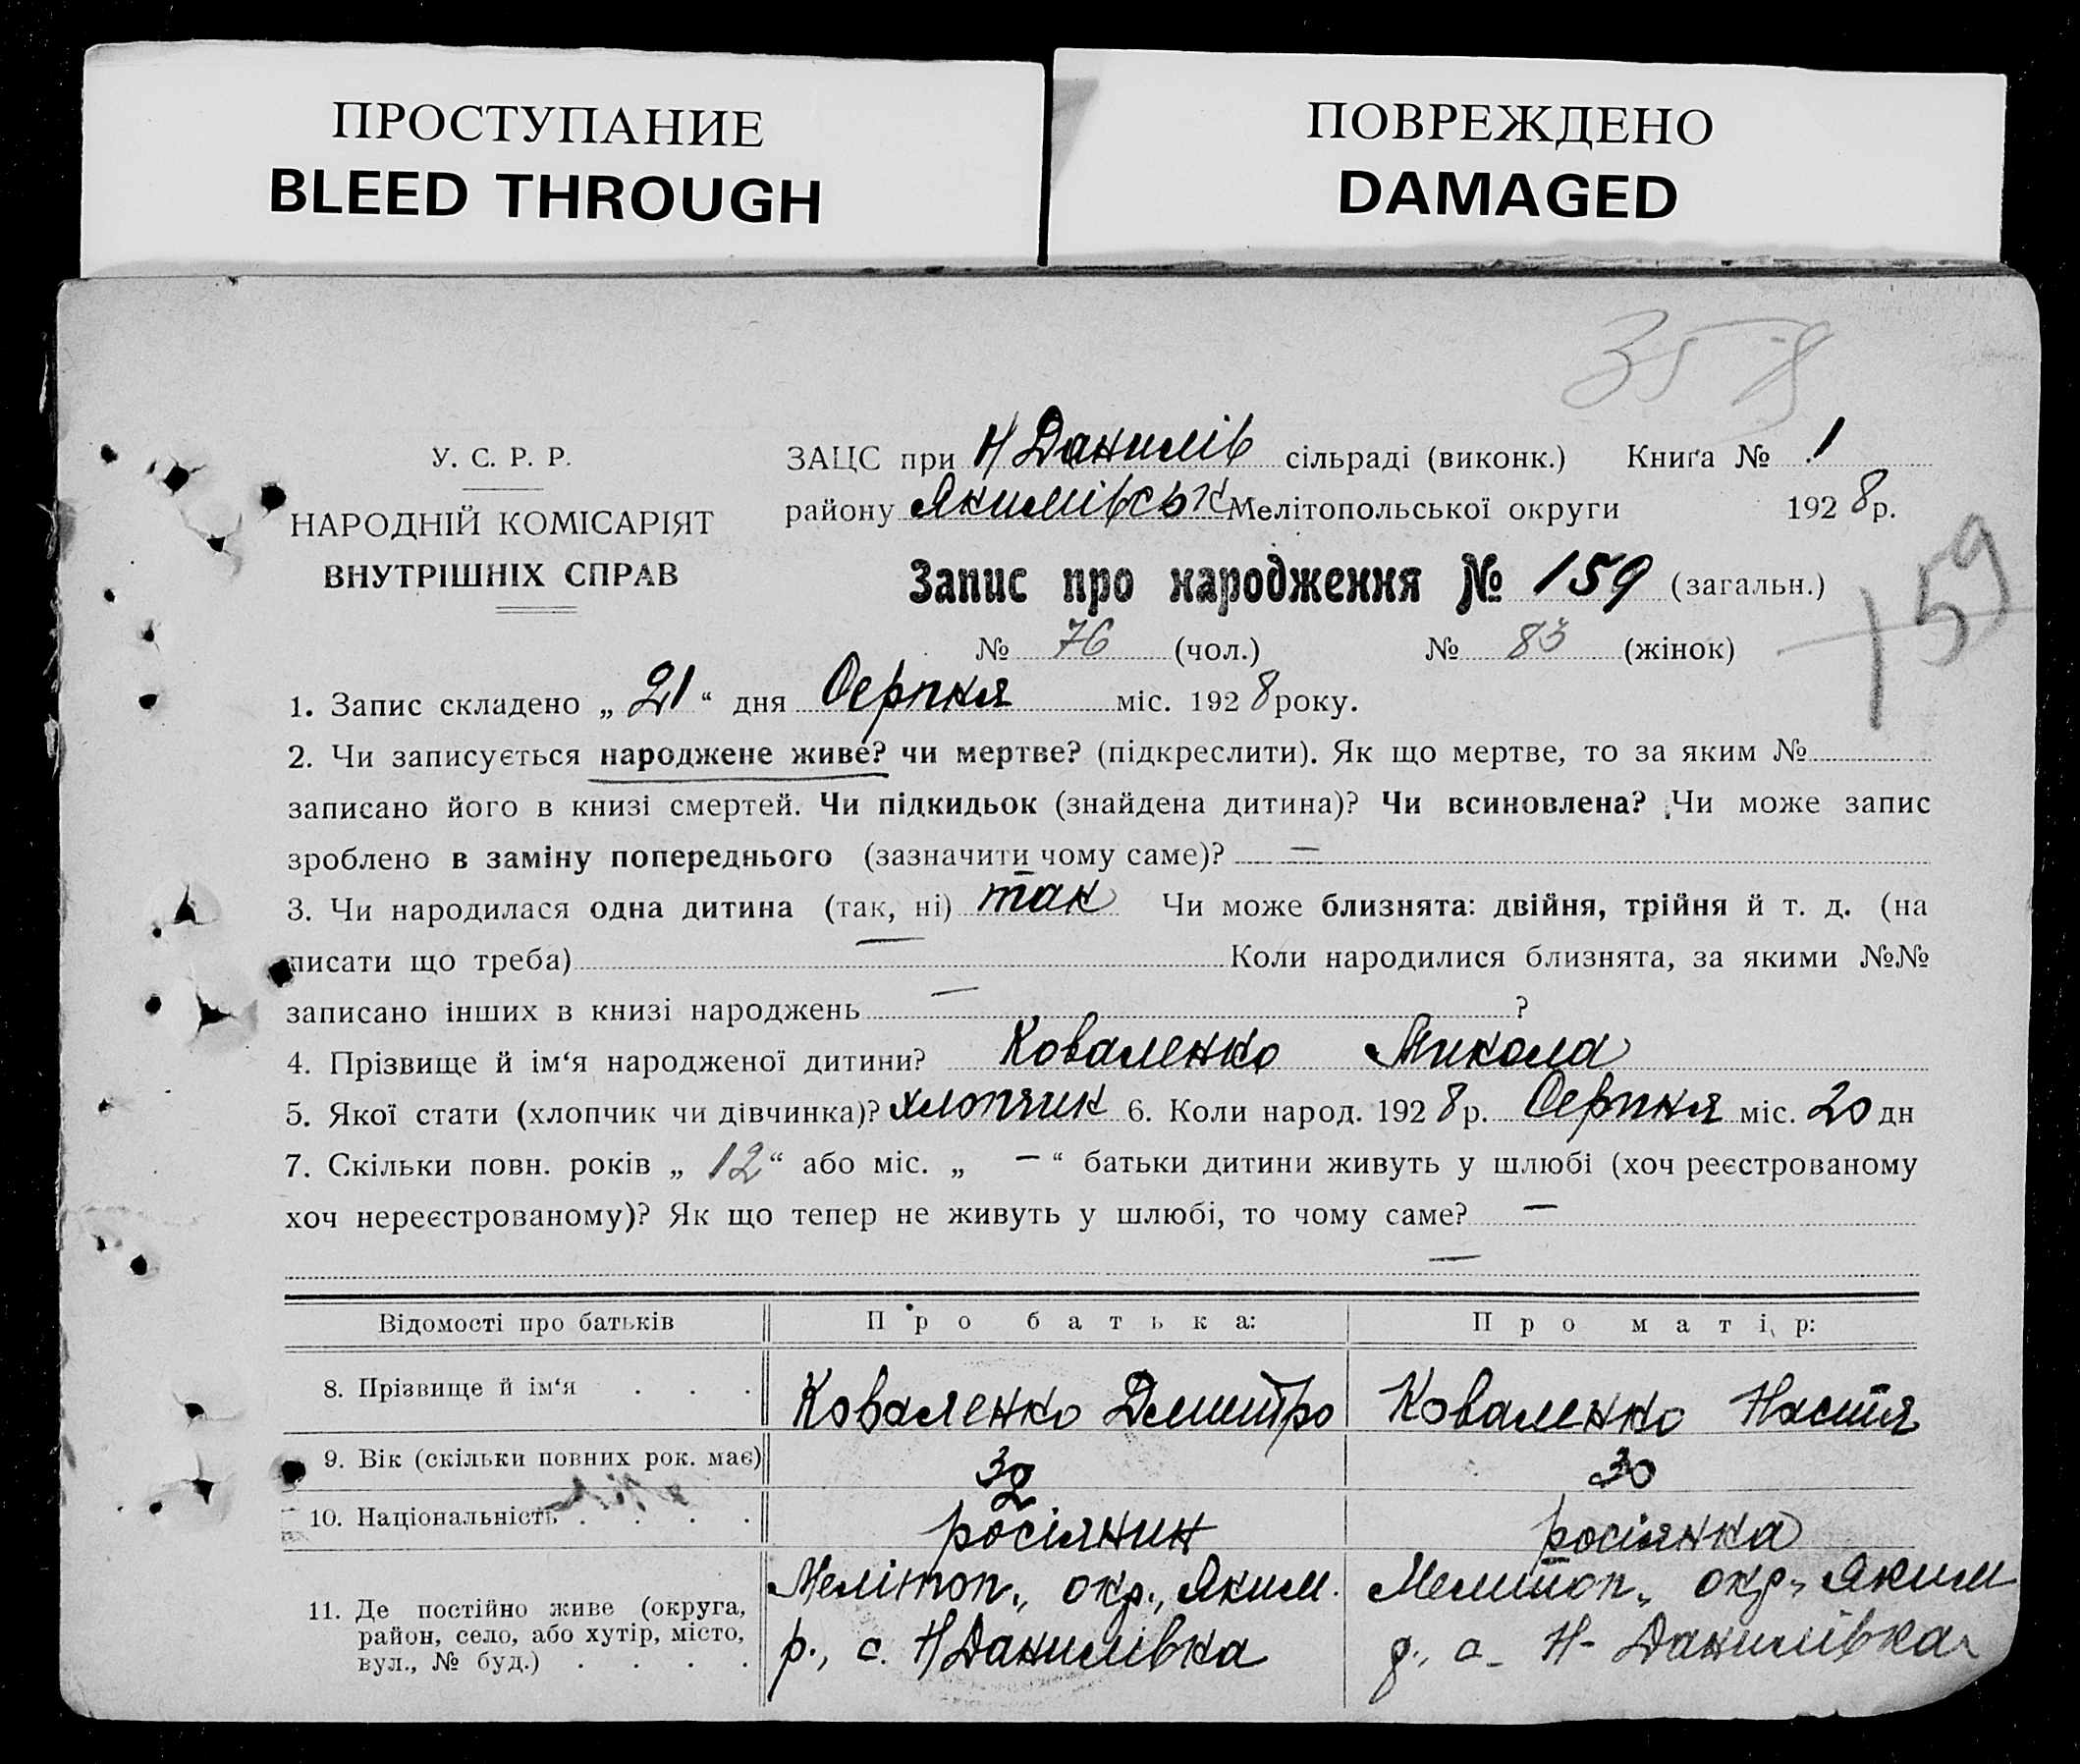 ПРОСТУПАНИЕ
BLEED THROUGH
ПОВРЕЖДЕНО
DAMAGED
358
У. С. Р. Р.
НАРОДНІЙ КОМІСАРІЯТ
ВНУТРІШНІХ СПРАВ
ЗАЦС при Н Данилів сільраді (виконк.) Книга № 1
району Якимівськ Мелітопольської округи 1928 р.
Запис про народження № 159 (загальн.)
159
№ 76 (чол.) № 83 (жінок)
1. Запис складено „ 21 “ дня Серпня міс. 1928 року.
2. Чи записується народжене живе? чи мертве? (підкреслити). Як що мертве, то за яким №
записано його в книзі смертей. Чи підкидьок (знайдена дитина)? Чи всиновлена? Чи може запис
зроблено в заміну попереднього (зазначити чому саме)? —
3. Чи народилася одна дитина (так, ні) так Чи може близнята: двійня, трійня й т. д. (на
писати що треба) — Коли народилися близнята, за якими №№
записано інших в книзі народжень — ?
4. Прізвище й ім‘я народженої дитини? Коваленко Микола
5. Якої стати (хлопчик чи дівчинка)? хлопчик 6. Коли народ. 1928 р. Серпня міс. 20 дн
7. Скільки повн. років „ 12 “ або міс. „ — “ батьки дитини живуть у шлюбі (хоч реєстрованому
хоч нереєстрованому)? Як що тепер не живуть у шлюбі, то чому саме? —
—
Відомості про батьків Про батька: Про матір:
8. Прізвище й ім‘я . . . Коваленко Дмитро Коваленко Настя
9. Вік (скільки повних рок. має) 32 30
10. Національність . . . . росіянин росіянка
11. Де постійно живе (округа,
район, село, або хутір, місто,
вул., № буд.) . . . .
Мелітоп., окр., Яким.
р., с. Н Данилівка
Мелитоп., окр., Яким
р., с. Н- Данилівка